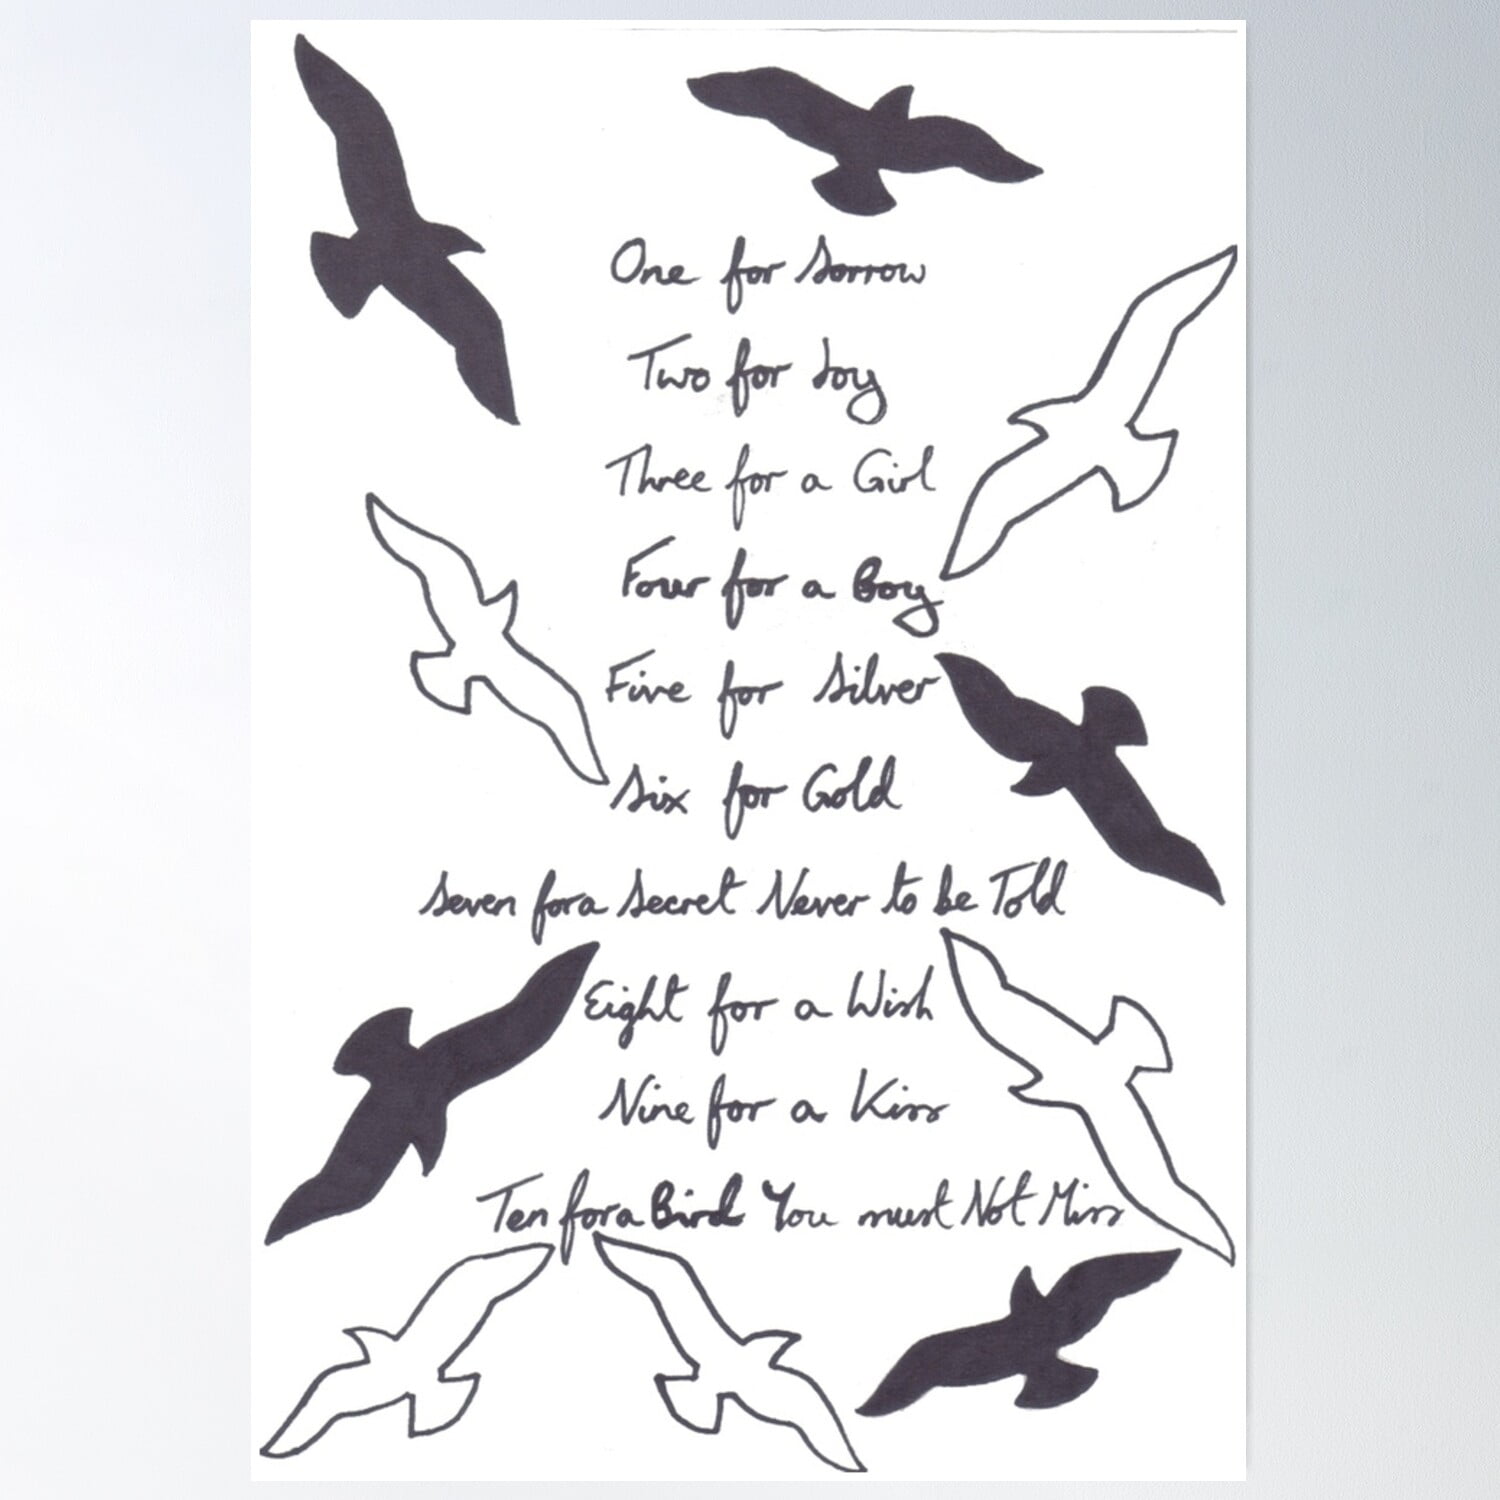 One for Sorrow
Two for Joy
Three for a Girl
Four for a Boy
Five for Silver
Six for Gold
Seven for a Secret Never to be Told
Eight for a Wish
Nine for a Kiss
Ten for a Bird You must Not Miss